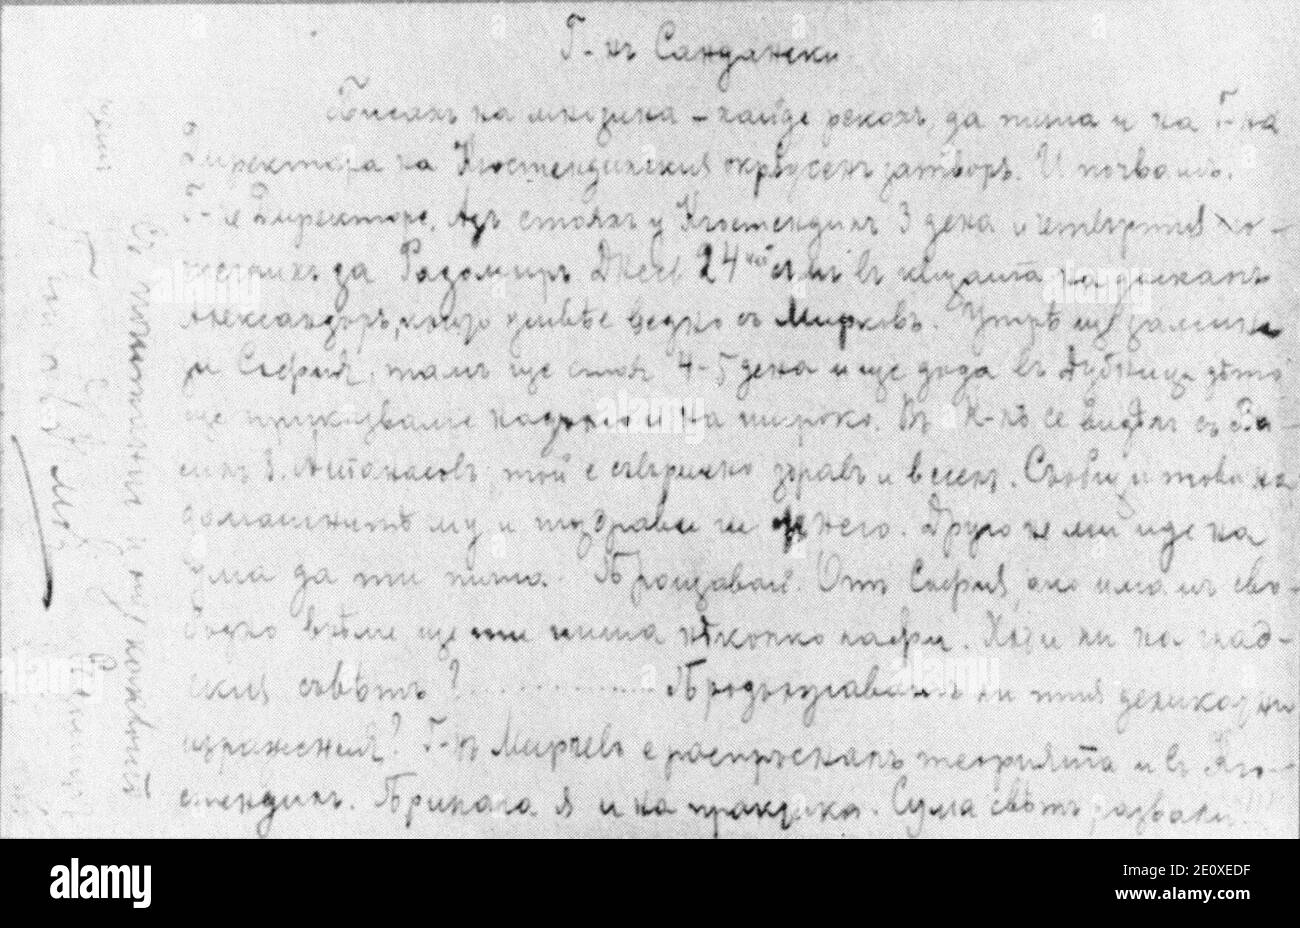 Г-нъ Сандански
Писахъ на мнозина – хайде рекохъ, да пиша и на Г-на
Директора на Кюстендилския окрѫженъ затворъ. И почвамъ.
Г-не Директоре, Азъ стояхъ у Кюстендилъ 3 дена и четвъртия по-
теглихъ за Радомиръ. Днесъ 24 съмъ въ на
Александоръ, който живѣе ведно съ Мирковъ. Утрѣ ще замина
за София, тамъ ще стоя 4-5 дена и ще дода въ Дубница дѣто
ще приказваме надълго и на широко. Въ К-лъ се видѣхъ съ Ва-
силъ З. Атанасовъ, той е съвършено здравъ и веселъ. Съобщи това на
домашнитѣ му и поздрави ги отъ него. Друго не ми иде на
ума да ти пиша. Прощавай. Отъ София, ако имамъ сво-
бодно врѣме ще ти пиша нѣколко лафи. Ходи ли на град-
ския съвѣтъ? ............... Продължавамъ ли тия деликатни
изражения? Г-нъ Мирчевъ е распръсналъ теорията и въ Кю-
стендилъ. Прилага я и на практика. Сума свѣтъ развали.
Съ почитание и
alamy
Image ID: 2E0XEDF
www.alamy.com